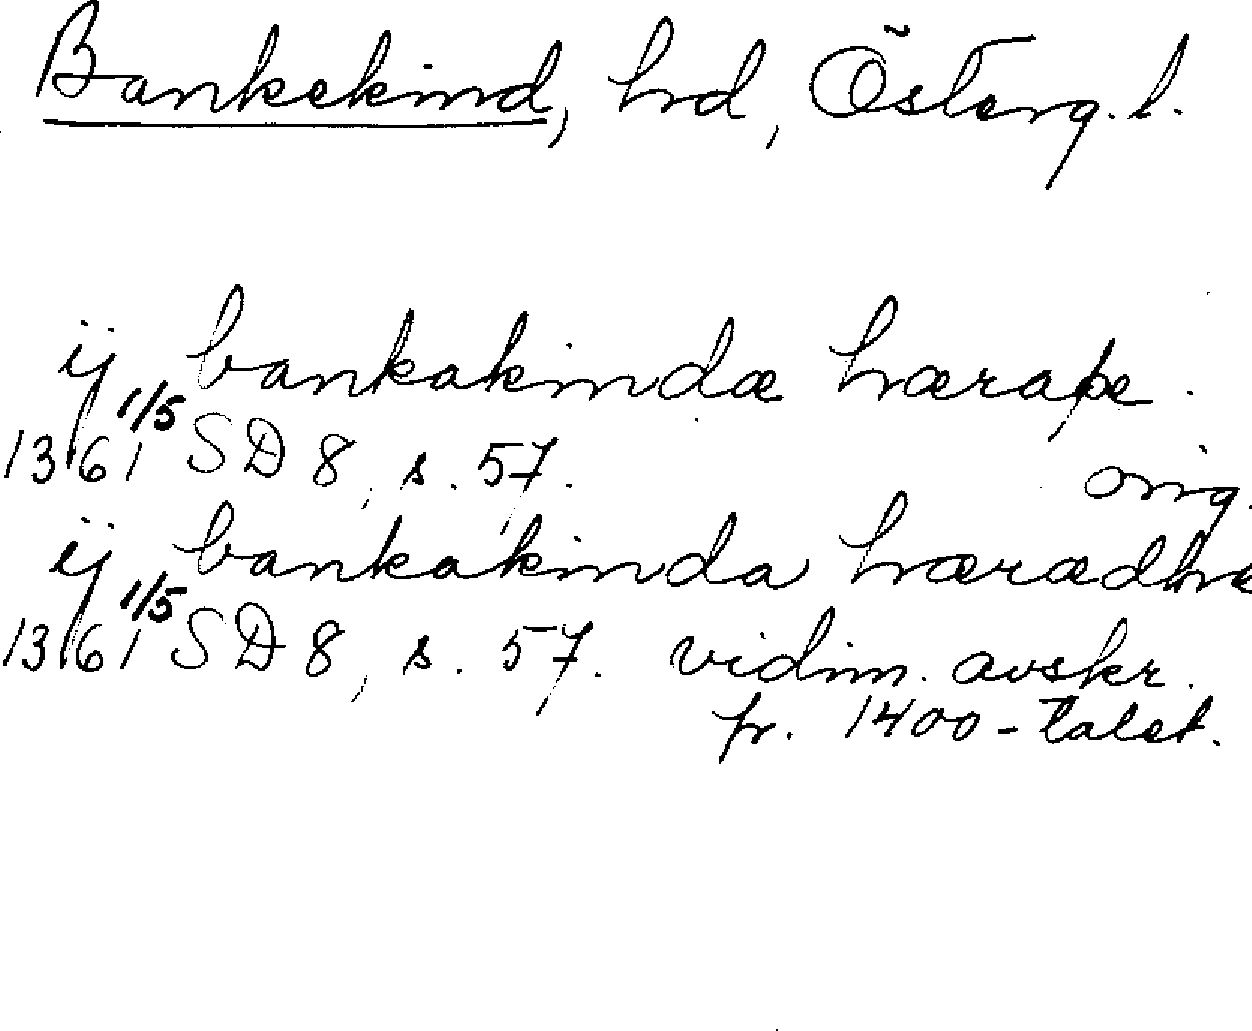 Bankekind, hd, Österg. l.
ij bankakindæ hæraþe.
1361 1/5 SD 8, s. 57. orig.
ij bankakinda hærædhe
1361 1/5 SD 8, s. 57. vidim. avskr.
fr. 1400-talet.